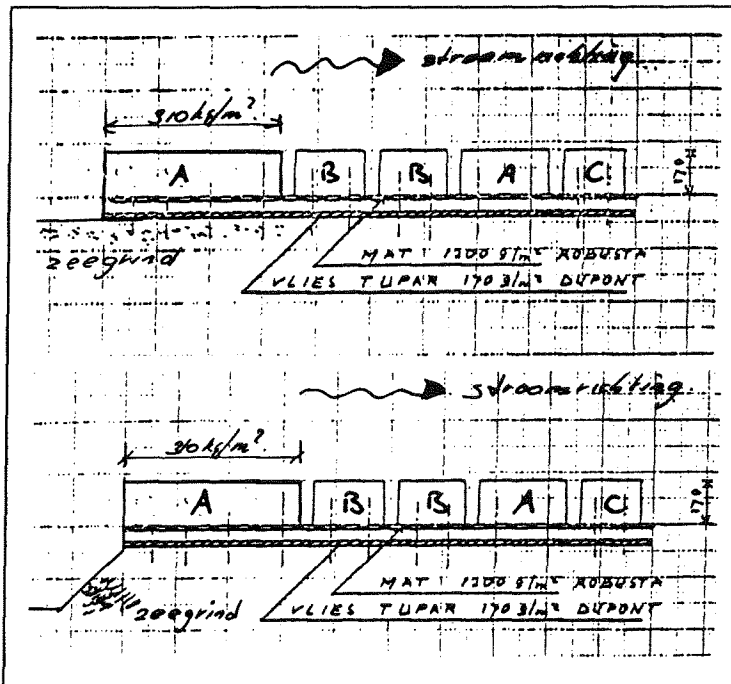 stroomrichting.
310 kg/m².
A B B A C
170
zeegrind
MAT: 1300 g/m² ROBUSTA
VLIES TYPAR 170 g/m² DUPONT
stroomrichting.
310 kg/m².
A B B A C
170
MAT: 1300 g/m² ROBUSTA
zeegrind
VLIES TYPAR 170 g/m² DUPONT